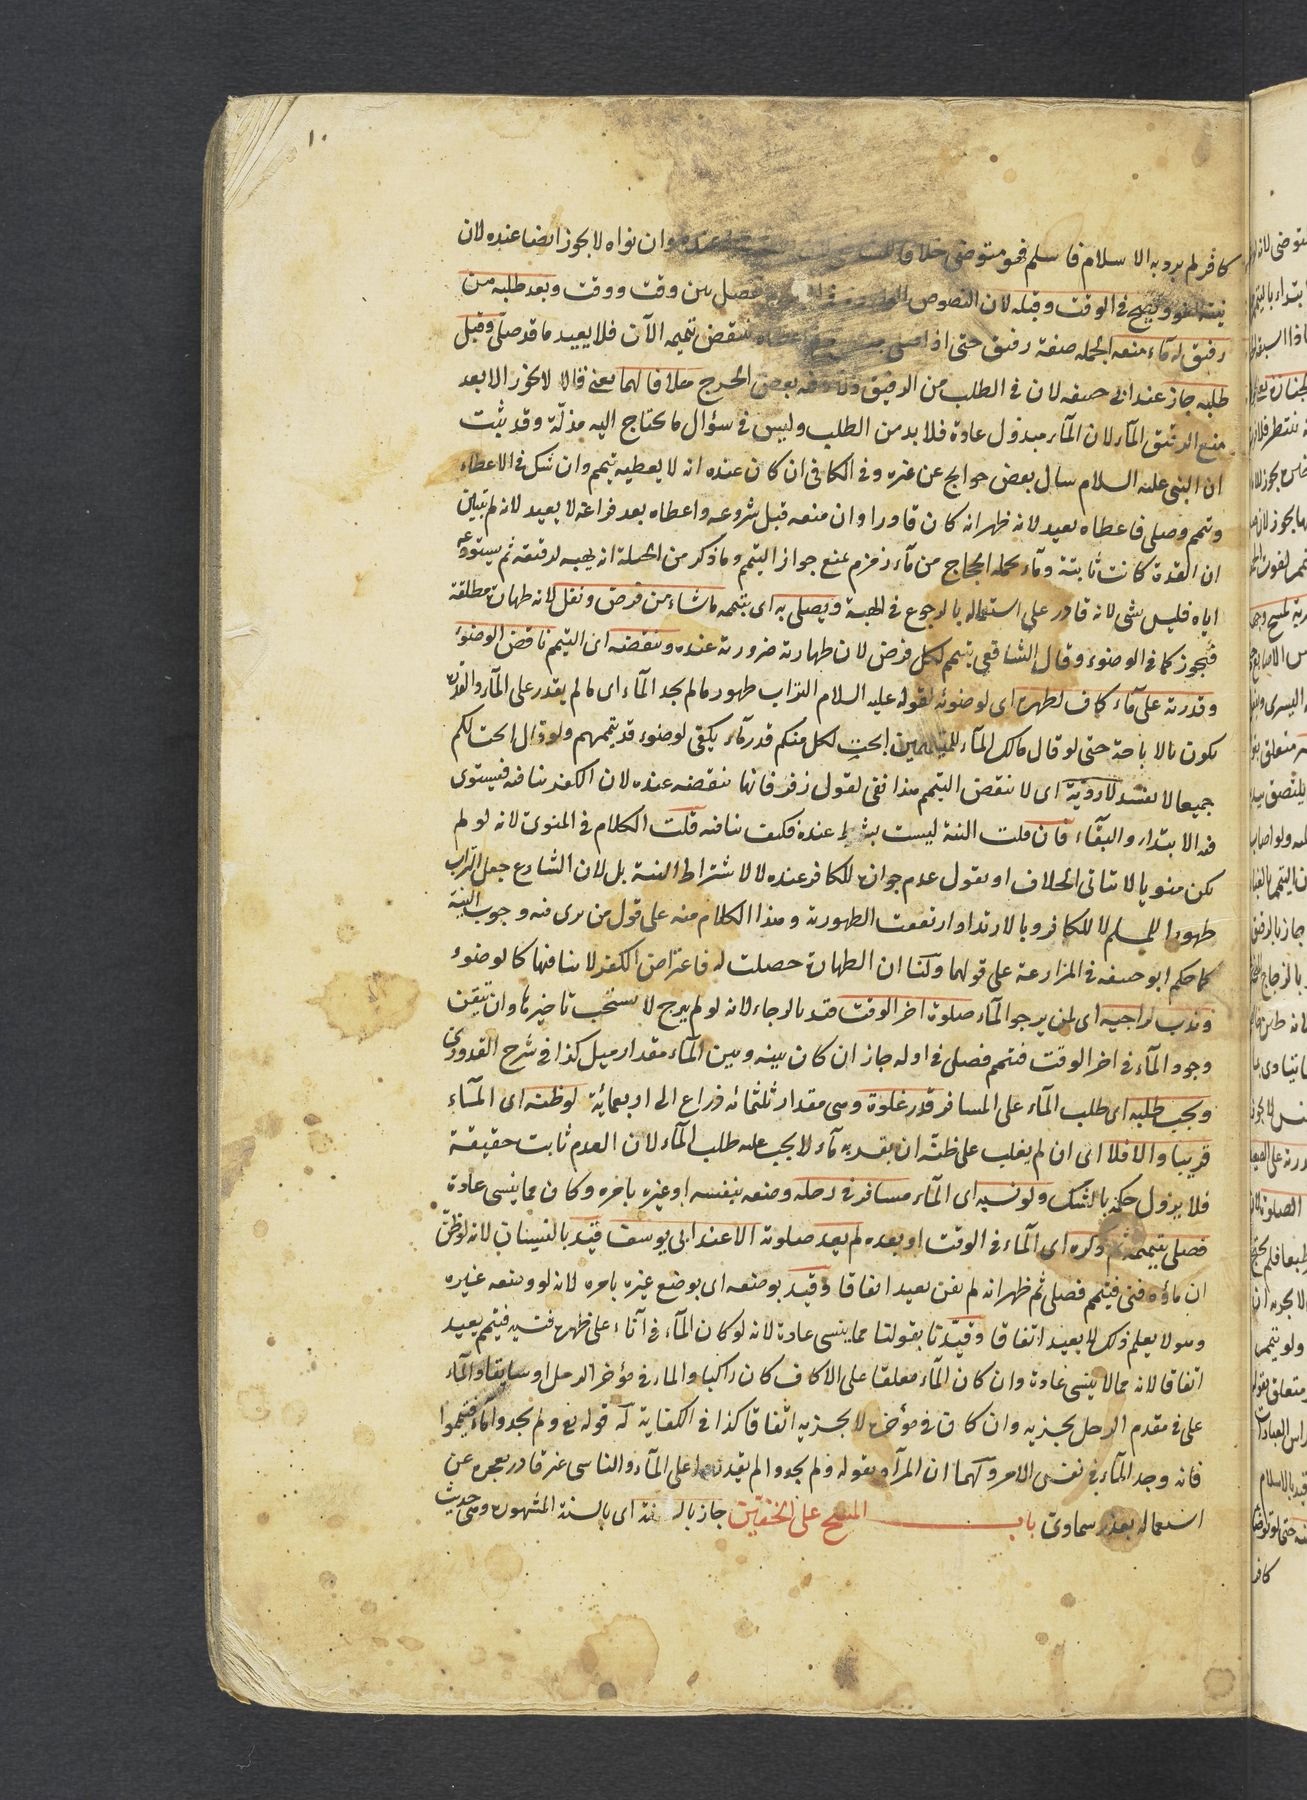 ١٠
كافر لم يرد به الاسلام فاسلم فهو متوضئ خلافا وان نواه لا يجوز ايضا عنده لان
نيته لغو ويصح في الوقت وقبله لان النصوص فصل بين وقت ووقت وبعد طلبه من
رفيق له مآء منعه الجملة صفة رفيق حتى اذا ينتقض تيممه الآن فلا يعيد ما قد صلى وقبل
طلبه جاز عند ابي حنيفه لان في الطلب من الرفيق بعض الحرج خلافا لهما يعني قالا لا يجوز الا بعد
منع الرفيق المآء لان المآء مبذول عادة فلا بد من الطلب وليس في سؤال ما يحتاج اليه مذلّة وقد ثبت
ان النبي عليه السلام سال بعض حوايج عن غيره وفي الكافي ان كان عنده انه لا يعطيه تيمم وان شك في الاعطاء
وتيمم وصلى فاعطاه يعيد لانه ظهر انه كان قادرا وان منعه قبل شروعه واعطاه بعد فراغه لا يعيد لانه لم يتبين
ان القدرة كانت ثابتة ومآء محمله الحجاج من مآء زمزم يمنع جواز التيمم وما ذكر من الحيلة انه يهبه لرفيقه ثم يستودعه
اياه فليس بشئ لانه قادر على استعماله بالرجوع في الهبة ويصلى به اى بتيممه ما شاء من فرض ونفل لانه طهارة مطلقة
فيجوز كما في الوضوء وقال الشافعي يتيمم لكل فرض لان طهارته ضرورية عنده وينقضه اى التيمم ناقض الوضوء
وقدرته على مآء كاف لطهره اى لوضوئه لقوله عليه السلام التراب طهور ما لم يجد المآء اى ما لم يقدر على المآء والقدرة
يكون بالاباحة حتى لو قال مالك المآء للمتيممين ابحت لكل منكم قدر مآء يكفى لوضوء قد تيممهم ولو قال ابحت لكم
جميعا لا يفسد لا ردّته اى لا ينقض التيمم هذا نفى لقول زفر فانها تنقضه عنده لان الكفر ينافيه فيستوى
فيه الابتداء والبقآء فان قلت النية ليست بشرط عنده فكيف ينافيه قلت الكلام في المنوى لانه لو لم
يكن منويا لا يتاتى الخلاف او يقول عدم جوازه للكافر عنده لا لاشتراط النية بل لان الشارع جعل التراب
طهورا للمسلم لا للكافر وبالارتداد ارتفعت الطهورية وهذا الكلام منه على قول من يرى فيه وجوب النية
كما حكم ابو حنيفه في المزارعة على قولهما ولنا ان الطهارة حصلت له فاعتراض الكفر لا ينافيها كالوضوء
وندب لراجيه اى لمن يرجو المآء صلوة اخر الوقت قيد بالرجاء لانه لو لم يرج لا يستحب تاخيرها وان تيقن
وجود المآء في اخر الوقت فتيمم فصلى في اوله جاز ان كان بينه وبين المآء مقدار ميل كذا في شرح القدورى
ويجب طلبه اى طلب المآء على المسافر قدر غلوة وهي مقدار ثلثمائه ذراع الى اربعمائة لو ظنه اى المآء
قريبا والا فلا اى ان لم يغلب على ظنّه ان بقربه مآء لا يجب عليه طلب المآء لان العدم ثابت حقيقة
فلا يزول حكمه بالشك ولو نسيه اى المآء مسافر في رحله وضعه بنفسه او غيره بامره وكان مما ينسى عادة
فصلى بتيممه ثم ذكره اى المآء في الوقت او بعده لم يعد صلوته الا عند ابي يوسف قيّد بالنسيان لانه لو ظنّ
ان ماؤه فنى فتيمم فصلى ثم ظهر انه لم يفن يعيد اتفاقا وقيد بوضعه اى بوضع غيره بامره لانه لو وضعه غيره
وهو لا يعلم ذلك لا يعيد اتفاقا وقيّدنا بقولنا مما ينسى عادة لانه لو كان المآء في اناء على ظهره فنسيه فتيمم يعيد
اتفاقا لانه مما لا ينسى عادة وان كان المآء معلقا على الاكاف كان راكبا والماء في مؤخر الرحل او سايقا والمآء
على في مقدم الرحل يجزيه وان كان في مؤخره لا يجزيه اتفاقا كذا في الكفاية له قوله تع ولم يجدوا مآء فتيمموا
فانه وجد المآء في نفس الامر ولهما ان المراد بقوله ولم يجدوا لم يقدروا على المآء والناسى غير قادر بعجزه عن
استعماله بعذر سماوى باب المسح على الخفّين جاز بالسنة اى بالسنة المشهورة وهي حديث